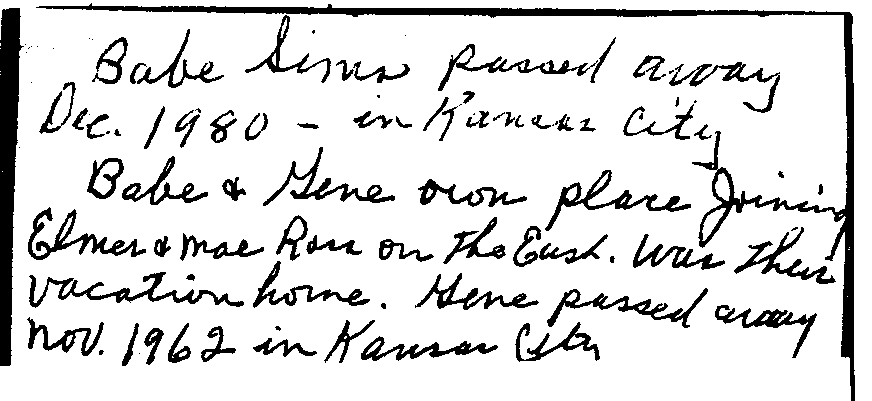 Babe Sims passed away
Dec. 1980 - in Kansas City
Babe & Gene own place Joining
Elmer & Mae Ross on the East. Was their
vacation home. Gene passed away
Nov. 1962 in Kansas City